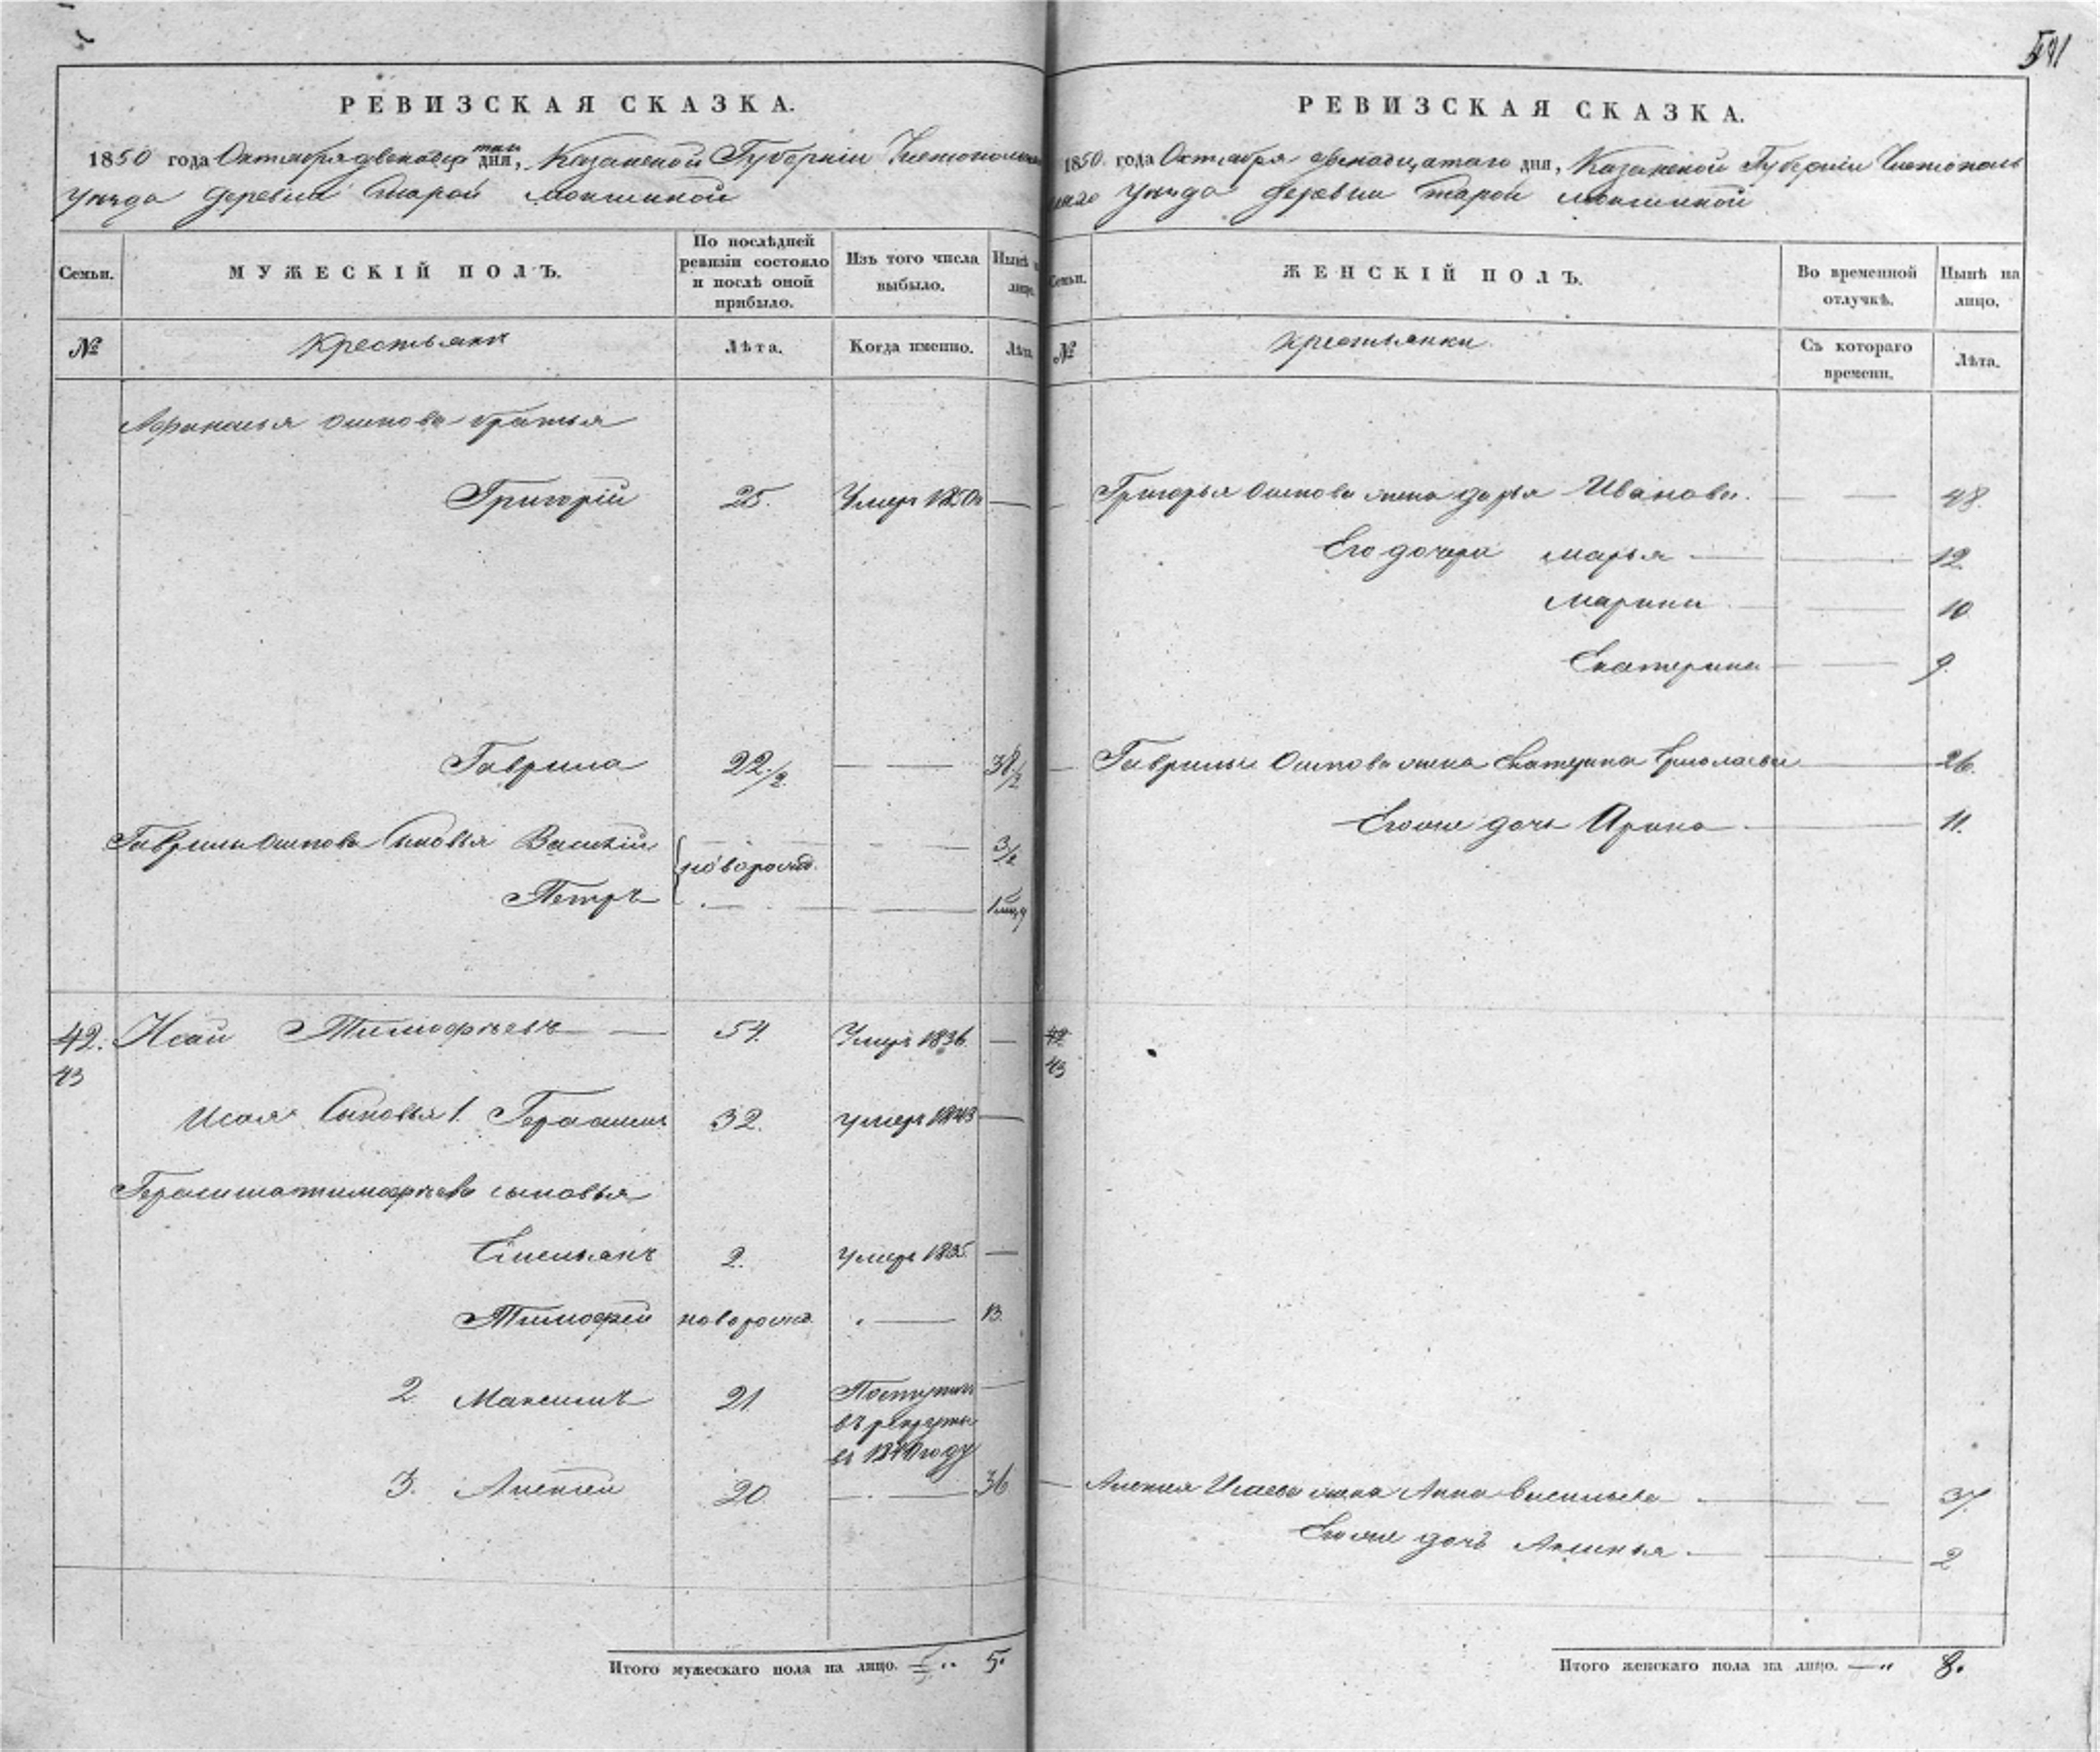 541
РЕВИЗСКАЯ СКАЗКА.
1850 года Октября двенадцатаго дня, Казанской Губерніи Чистополь
Уезда деревни Старой Мокшиной
Семьи. МУЖЕСКІЙ ПОЛЪ. По послѣдней ревизіи состояло и послѣ оной прибыло. Изъ того числа выбыло. Нынѣ на лицо.
№ Крестьянъ Лѣта. Когда именно. Лѣта.
Афанасья Осипова братья
Григорій 25. Умеръ 1850 —
Гаврила 22 1/2 — — 38 1/2
Гаврилы Осипова Сыновья Василій новорожд. — — 3/2
Петръ — — 1
42. Исай Тимофеевъ — 54. Умеръ 1836 —
43
Исая Сыновья 1. Герасимъ 32. умеръ 1843 —
Герасима Тимофеева сыновья
Емельянъ 2. умеръ 1835. —
Тимофей новорожд — 13.
2 Максимъ 21. Поступилъ —
въ рекруты
въ 1840 году
3. Алексей 20 — 36
Итого мужескаго пола на лицо. — 5.
РЕВИЗСКАЯ СКАЗКА.
1850. года Октября двенадцатаго дня, Казанской Губерніи Чистополь
скаго Уезда деревни Старой Мокшиной
Семьи. ЖЕНСКІЙ ПОЛЪ. Во временной отлучкѣ. Нынѣ на лицо.
№ Крестьянки Съ котораго времени. Лѣта.
Григорья Осипова жена Дарья Иванова. — — 48.
Его дочери Марья — — 12.
Марина — — 10
Екатерина — — 9.
Гаврилы Осипова жена Екатерина Ермолаева — 26.
Его же дочь Ирина — 11.
42
43
Алексея Исаева жена Анна Васильева — — 37.
Его же дочь Аксинья — — 2
Итого женскаго пола на лицо. — 8.